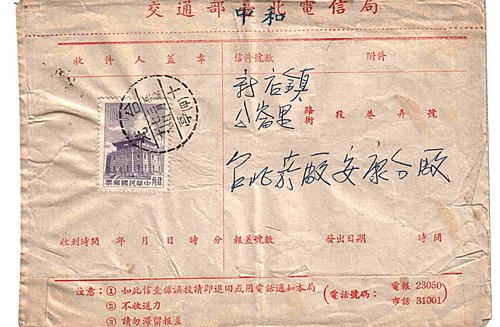 交通部臺北電信局
中和
收件人蓋章 信件號數 附件
新店鎮
公崙里 路街 段 巷 弄 號
台北菸廠安康分廠
中華民國郵票
收到時間 年 月 日 時 分 報蓋號數 發出日期 時間
注意：① 如此信查係誤投請即退回或用電話通知本局
② 不收送力
③ 請勿滯留報蓋
(電話號碼： 電報 23050
市話 31001)